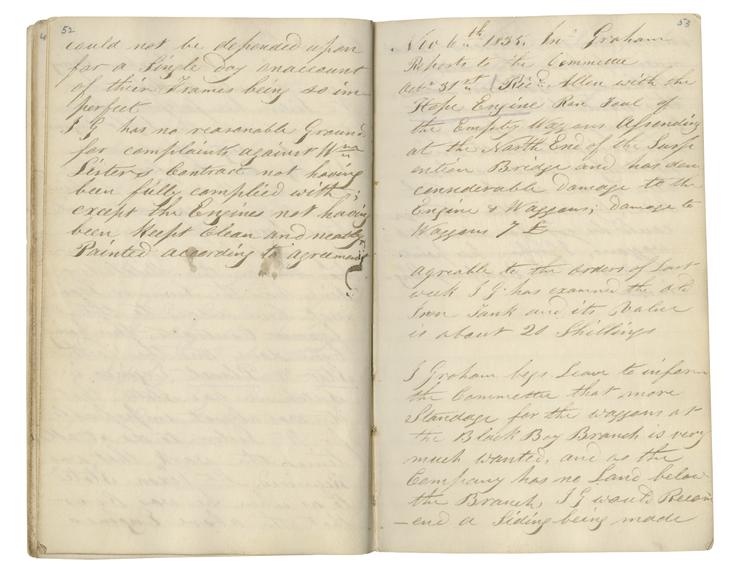 52
could not be depended upon
for a Single day on account
of their Frames being so im
perfect
J G has no reasonable Ground
for complaints against Wm
Lister,s Contract not having
been fully complied with;
except the Engines not having
been Keept Clean and neatly
Painted according to agreement
53
Nov 6th 1835. Jno Graham
Reports to the Committee
Octr 31st Richd Allen with the
Hope Engine Run Foul of
the Empty Waggons Assending
at the North End of the Susp
ention Bridge and has don
considerable Damage to the
Engine & Waggons; damage to
Waggons 7 £
agreable to the orders of Last
week J G has examined the old
Iron Tank and its Value
is about 20 Shillings
J Graham begs Leave to inform
the Committee that more
Standage for the waggons at
the Black Boy Branch is very
much wanted, and as the
Company has no Land below
the Branch, J G would Recom
-end a Siding being made